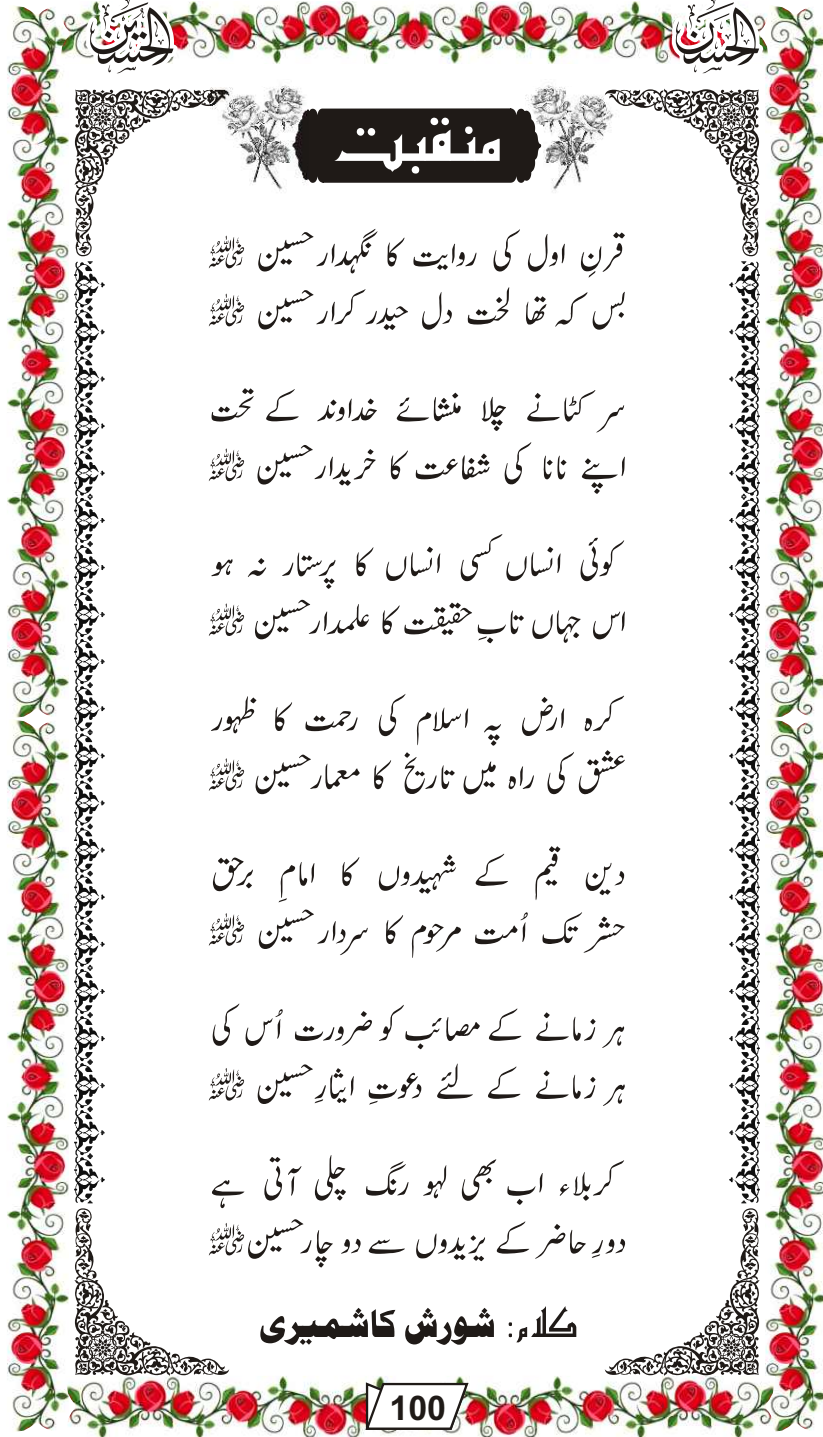 الحسین الحسین
منقبت
قرنِ اول کی روایت کا نگہدار حسین رضی اللہ عنہ
بس کہ تھا لخت دل حیدر کرار حسین رضی اللہ عنہ
سر کٹانے چلا منشائے خداوند کے تحت
اپنے نانا کی شفاعت کا خریدار حسین رضی اللہ عنہ
کوئی انساں کسی انساں کا پرستار نہ ہو
اس جہاں تابِ حقیقت کا علمدار حسین رضی اللہ عنہ
کرہ ارض پہ اسلام کی رحمت کا ظہور
عشق کی راہ میں تاریخ کا معمار حسین رضی اللہ عنہ
دین قیم کے شہیدوں کا امامِ برحق
حشر تک اُمت مرحوم کا سردار حسین رضی اللہ عنہ
ہر زمانے کے مصائب کو ضرورت اُس کی
ہر زمانے کے لئے دعوتِ ایثارِ حسین رضی اللہ عنہ
کربلاء اب بھی لہو رنگ چلی آتی ہے
دورِ حاضر کے یزیدوں سے دو چار حسین رضی اللہ عنہ
کلام: شورش کاشمیری
100